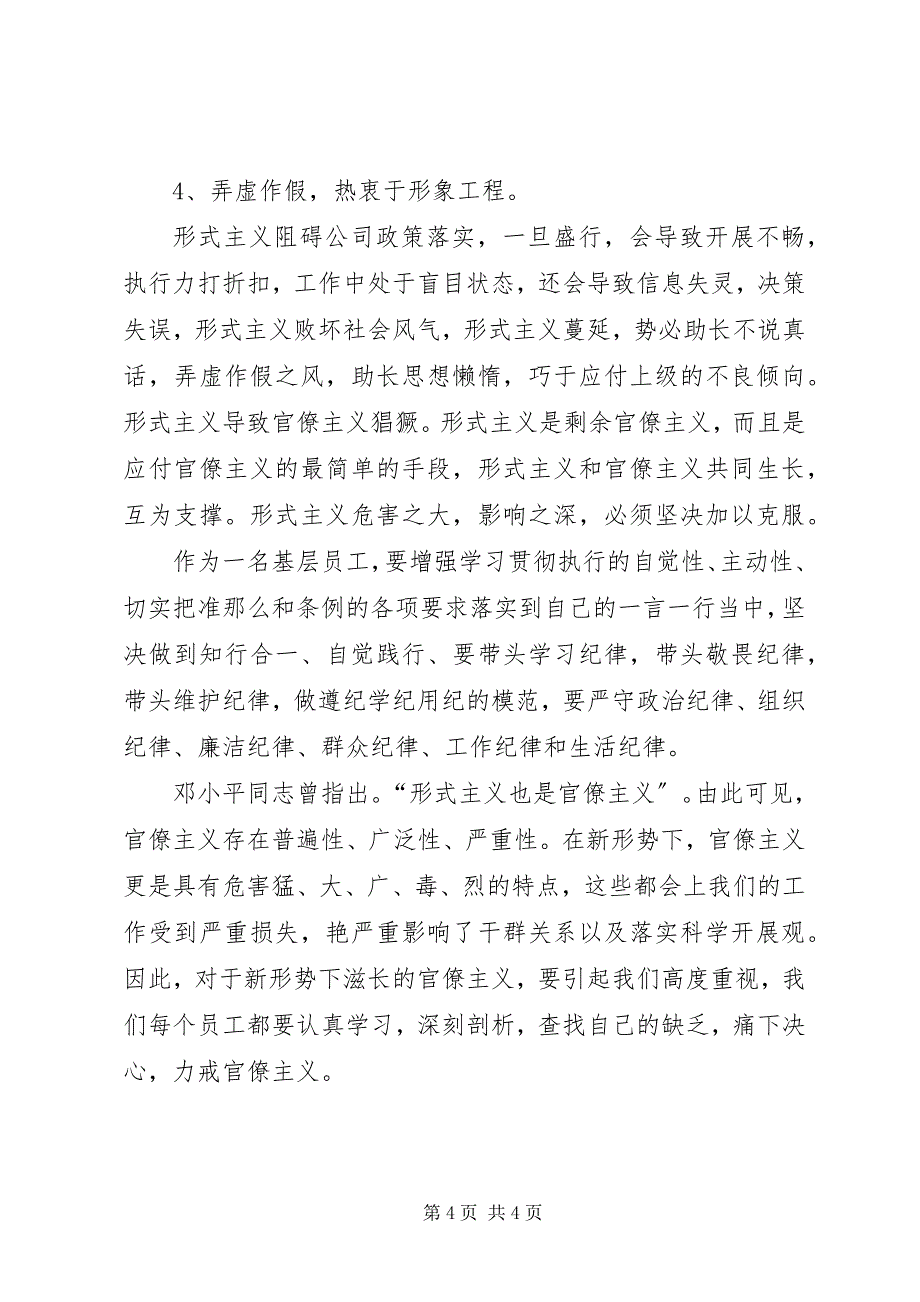 4、弄虚作假，热衷于形象工程。
形式主义阻碍公司政策落实，一旦盛行，会导致开展不畅，
执行力打折扣，工作中处于盲目状态，还会导致信息失灵，决策
失误，形式主义败坏社会风气，形式主义蔓延，势必助长不说真
话，弄虚作假之风，助长思想懒惰，巧于应付上级的不良倾向。
形式主义导致官僚主义猖獗。形式主义是剩余官僚主义，而且是
应付官僚主义的最简单的手段，形式主义和官僚主义共同生长，
互为支撑。形式主义危害之大，影响之深，必须坚决加以克服。
作为一名基层员工，要增强学习贯彻执行的自觉性、主动性、
切实把准那么和条例的各项要求落实到自己的一言一行当中，坚
决做到知行合一、自觉践行、要带头学习纪律，带头敬畏纪律，
带头维护纪律，做遵纪学纪用纪的模范，要严守政治纪律、组织
纪律、廉洁纪律、群众纪律、工作纪律和生活纪律。
邓小平同志曾指出。“形式主义也是官僚主义〞。由此可见，
官僚主义存在普遍性、广泛性、严重性。在新形势下，官僚主义
更是具有危害猛、大、广、毒、烈的特点，这些都会上我们的工
作受到严重损失，艳严重影响了干群关系以及落实科学开展观。
因此，对于新形势下滋长的官僚主义，要引起我们高度重视，我
们每个员工都要认真学习，深刻剖析，查找自己的缺乏，痛下决
心，力戒官僚主义。
第 4 页 共 4 页